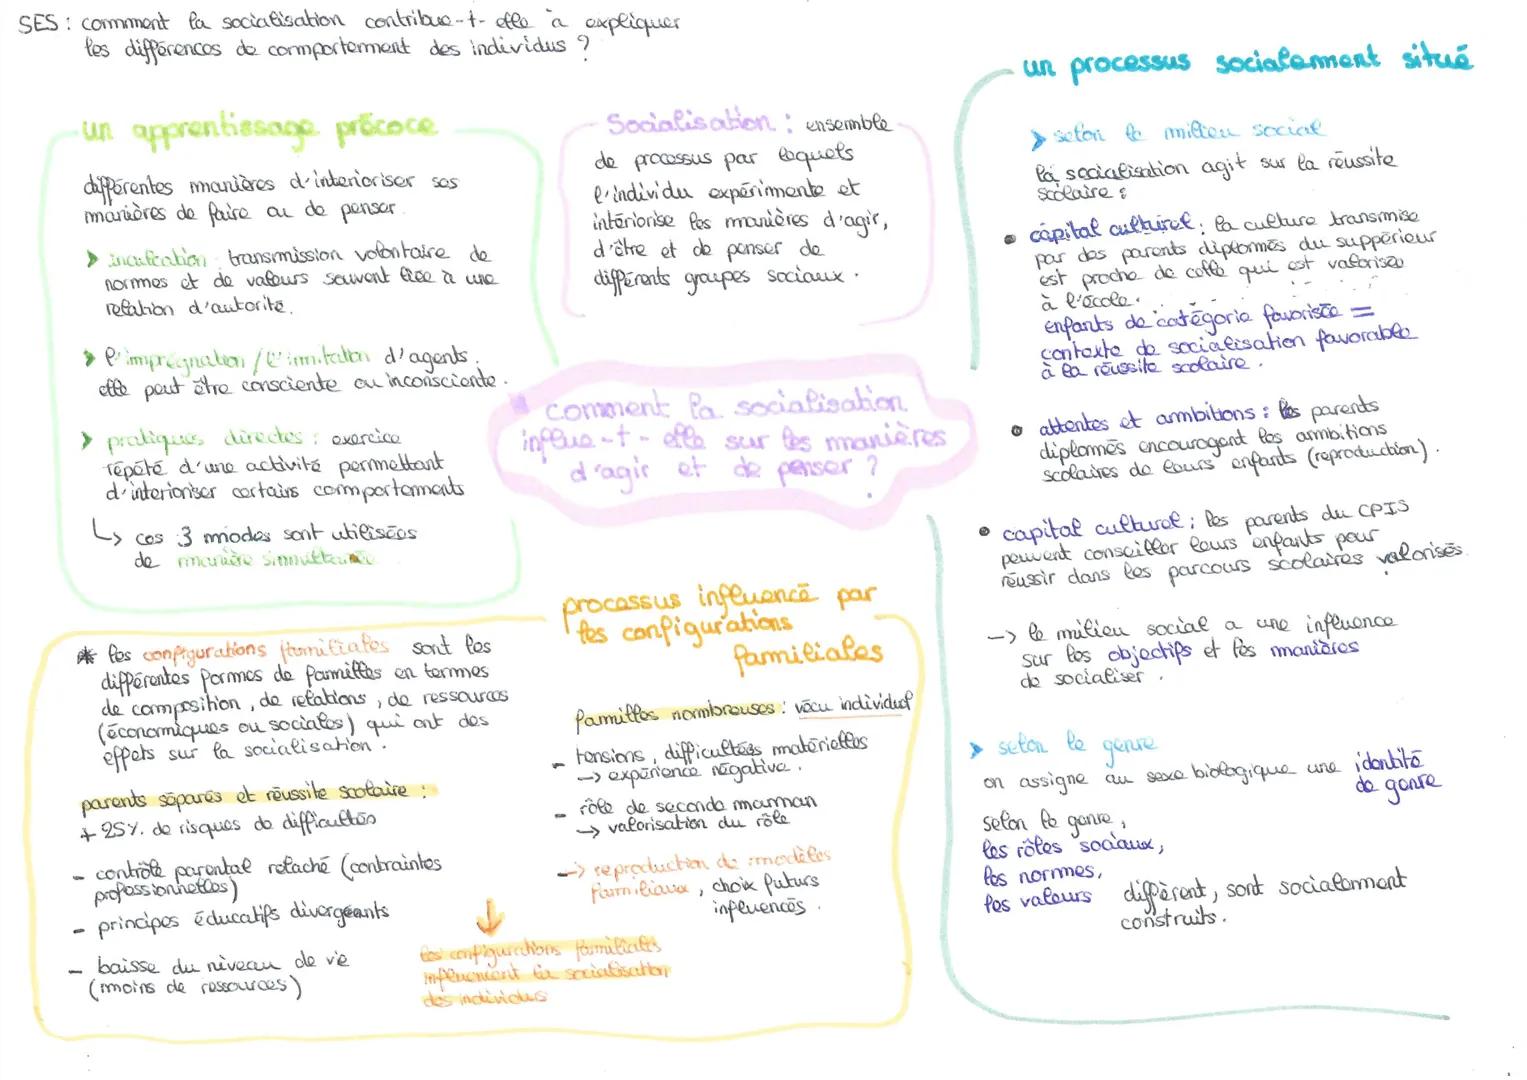 SES : comment la socialisation contribue-t-elle à expliquer
les différences de comportement des individus ?
un apprentissage précoce
différentes manières d'interioriser ses
manières de faire ou de penser.
inculcation : transmission volontaire de
normes et de valeurs souvent liée à une
relation d'autorité.
l'imprégnation / l'imitation d'agents.
elle peut être consciente ou inconsciente.
pratiques directes : exercice
répété d'une activité permettant
d'interioriser certains comportements
↳ ces 3 modes sont utilisées
de manière simultanée
Socialisation : ensemble
de processus par lesquels
l'individu expérimente et
intériorise les manières d'agir,
d'être et de penser de
différents groupes sociaux.
comment la socialisation
influe-t-elle sur les manières
d'agir et de penser ?
un processus socialement situé
selon le milieu social
la socialisation agit sur la réussite
scolaire :
• capital culturel : la culture transmise
par des parents diplômés du suppérieur
est proche de celle qui est valorisée
à l'école.
enfants de catégorie favorisée =
contexte de socialisation favorable
à la réussite scolaire.
• attentes et ambitions : les parents
diplômés encouragent les ambitions
scolaires de leurs enfants (reproduction).
• capital culturel ; les parents du CPIS
peuvent conseiller leurs enfants pour
réussir dans les parcours scolaires valorisés.
-> le milieu social a une influence
sur les objectifs et les manières
de socialiser.
selon le genre
on assigne au sexe biologique une identité
de genre
selon le genre,
les rôles sociaux,
les normes,
les valeurs diffèrent, sont socialement
construits.
processus influencé par
les configurations
familiales
* les configurations familiales sont les
différentes formes de familles en termes
de composition, de relations, de ressources
(économiques ou sociales) qui ont des
effets sur la socialisation.
parents séparés et réussite scolaire :
+ 25% de risques de difficultés
- contrôle parental relaché (contraintes
professionnelles)
- principes éducatifs divergeants
- baisse du niveau de vie
(moins de ressources)
familles nombreuses : vécu individuel
- tensions, difficultés matérielles
-> expérience négative.
- rôle de seconde maman
-> valorisation du rôle
-> reproduction de modèles
familiaux, choix futurs
influencés.
les configurations familiales
influencent la socialisation
des individus